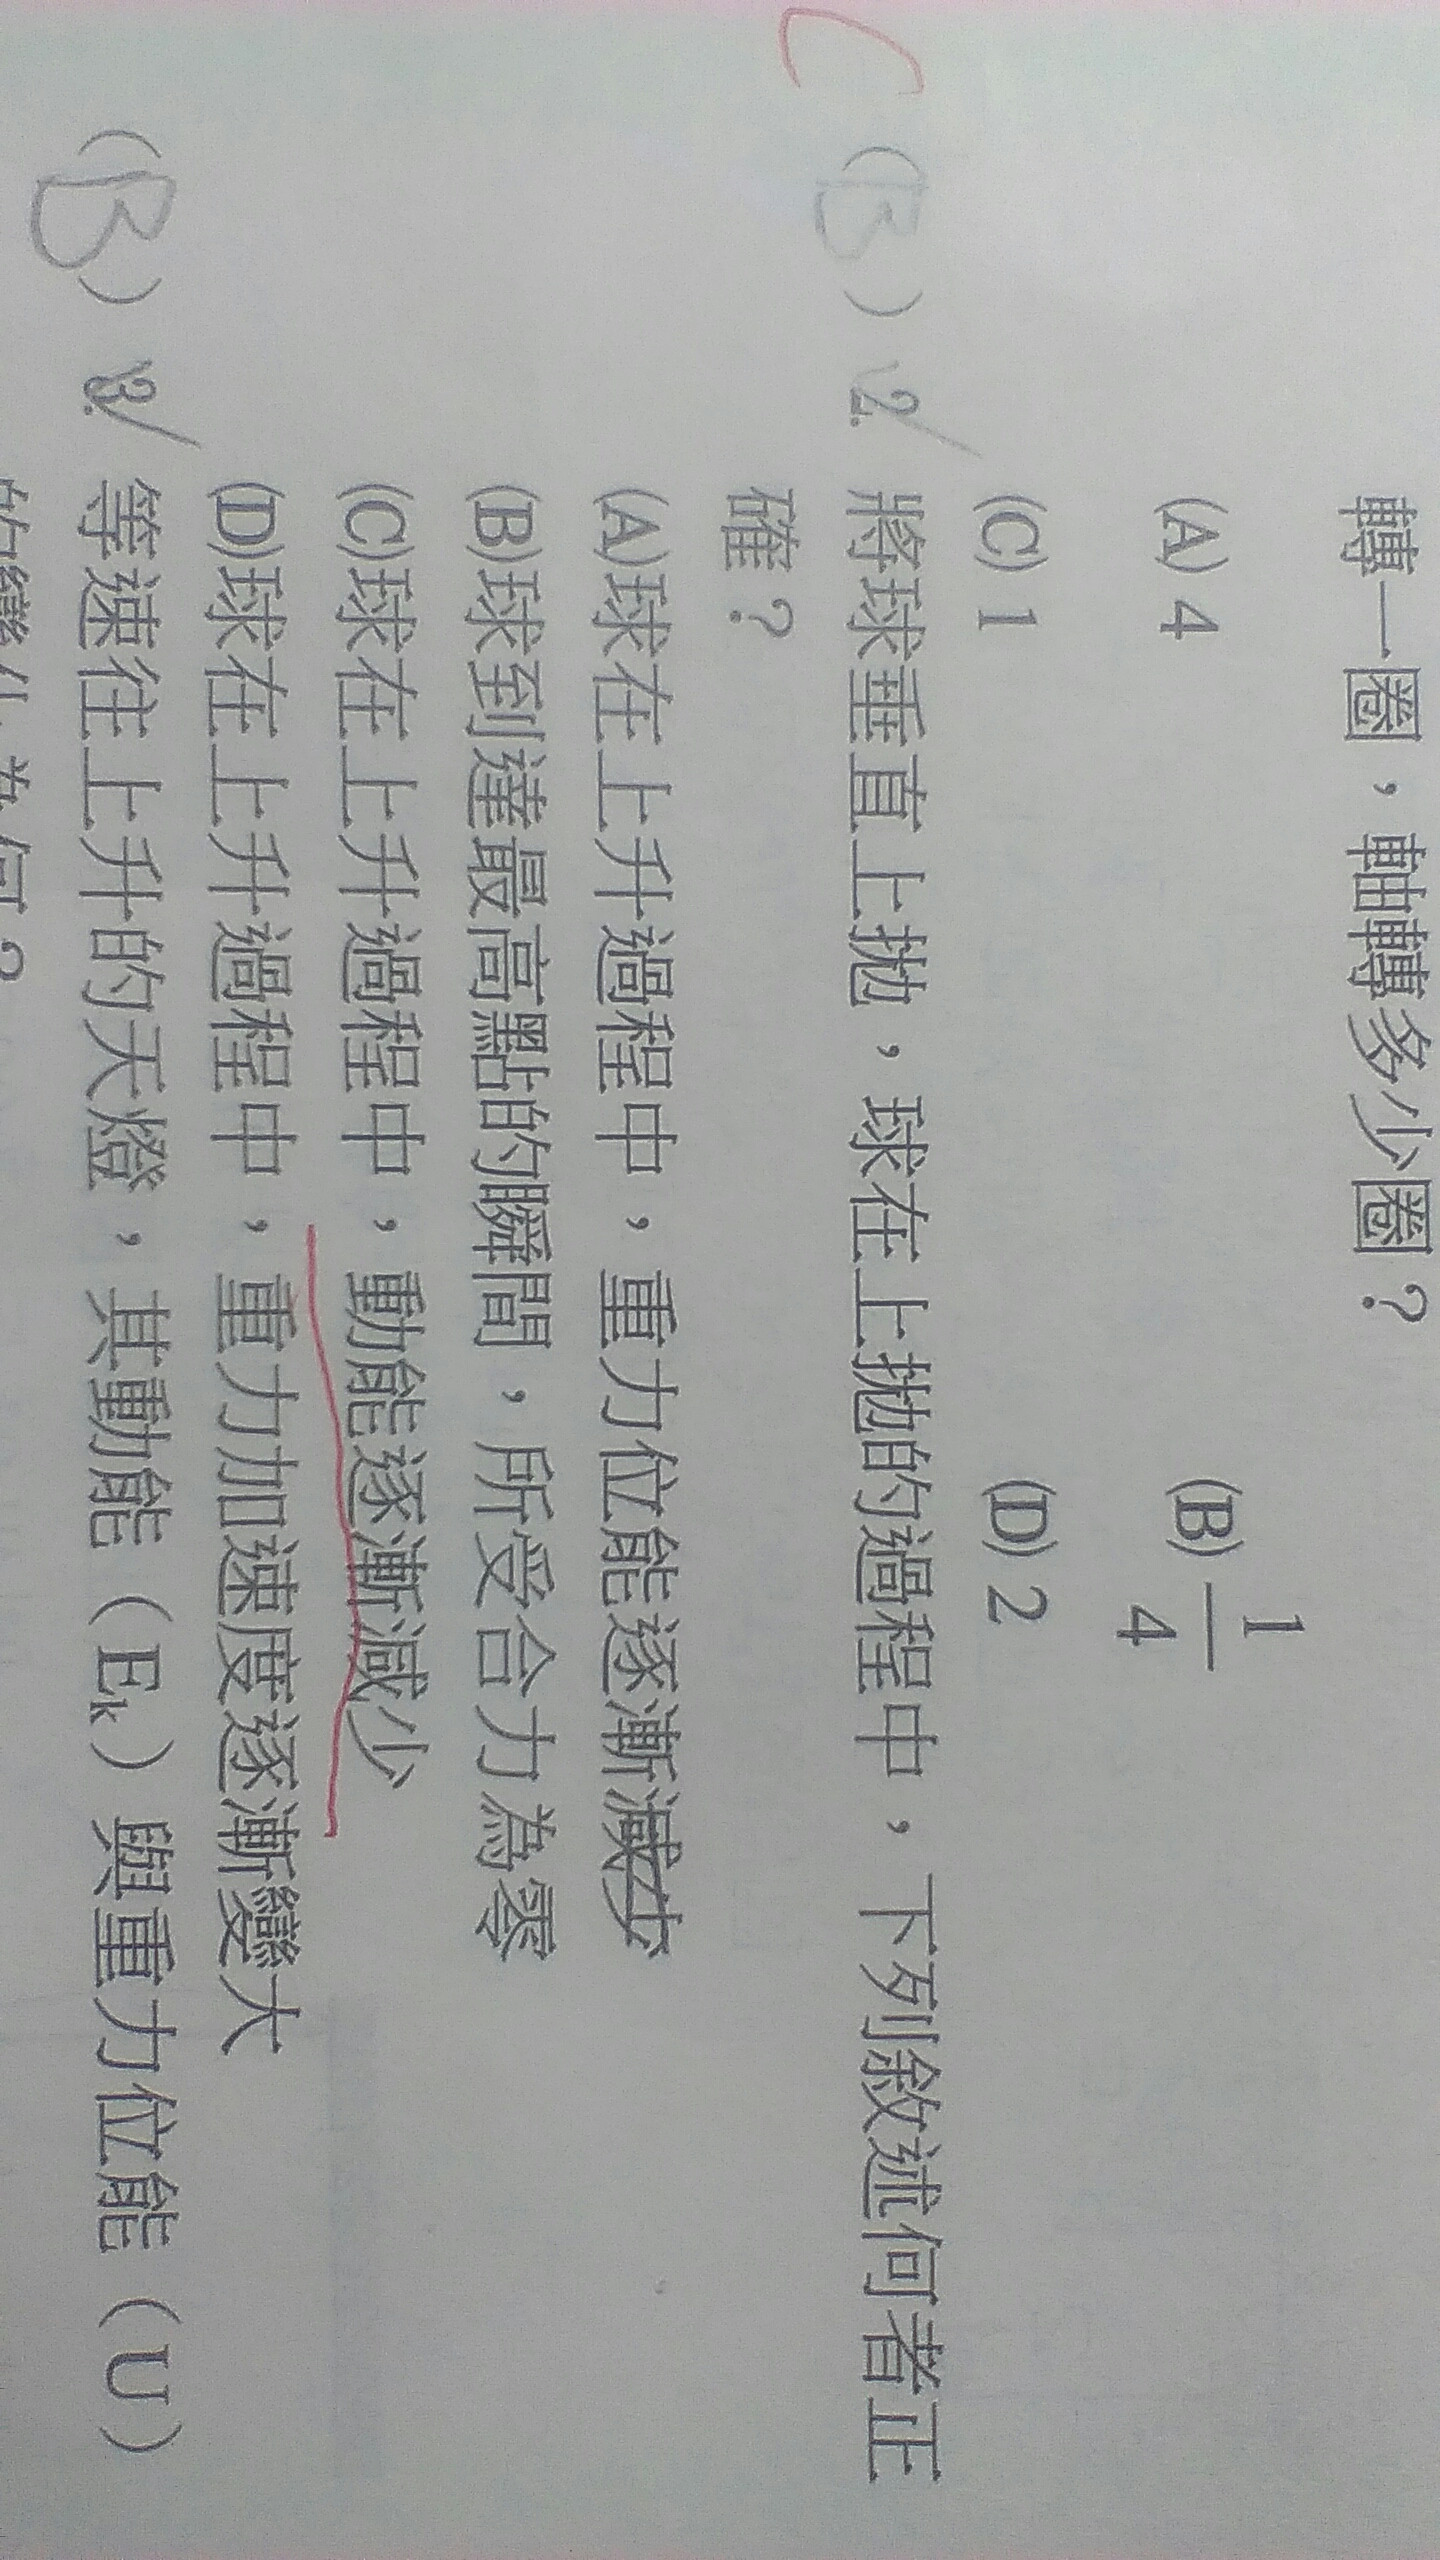 轉一圈，軸轉多少圈？
(A) 4 (B) 1/4
(C) 1 (D) 2
C (B) 2. 將球垂直上拋，球在上拋的過程中，下列敘述何者正
確？
(A)球在上升過程中，重力位能逐漸減少
(B)球到達最高點的瞬間，所受合力為零
(C)球在上升過程中，動能逐漸減少
(D)球在上升過程中，重力加速度逐漸變大
(B) 3. 等速往上升的天燈，其動能（Eₖ）與重力位能（U）
的變化為何？